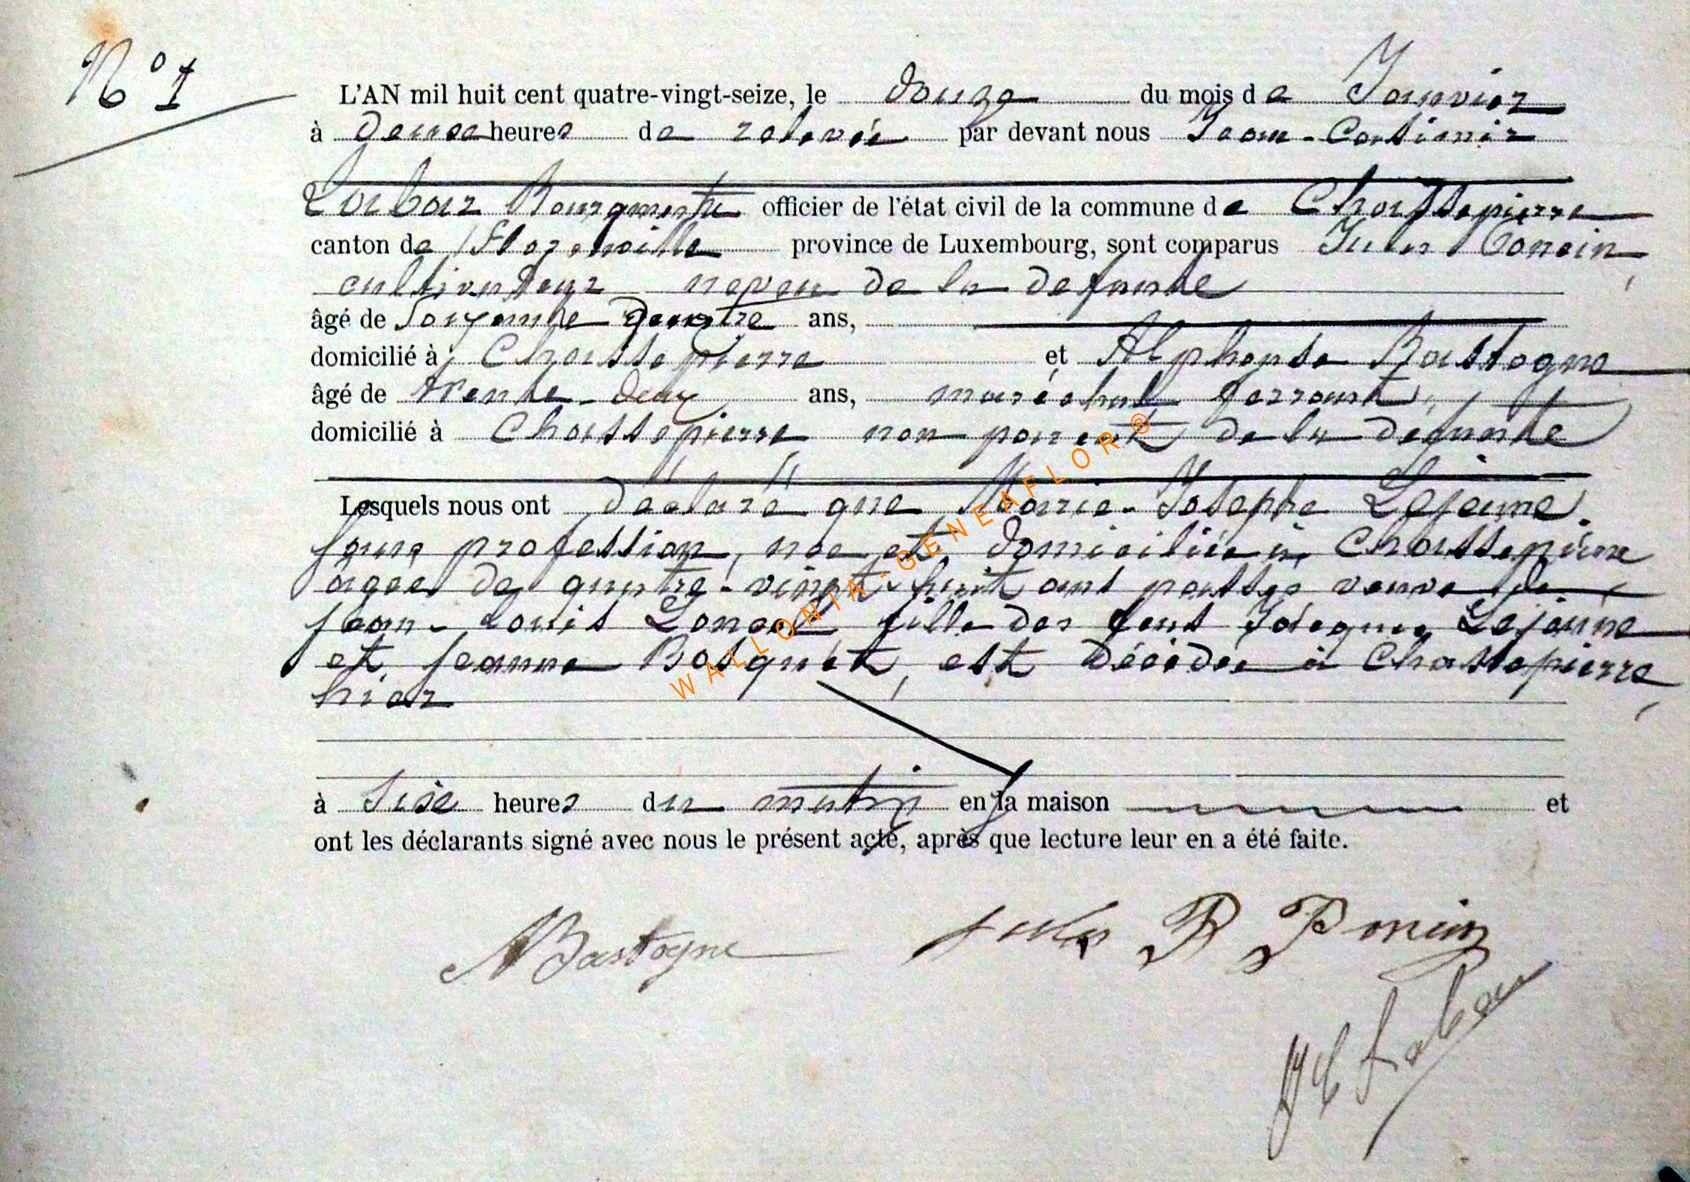 N° 1
L'AN mil huit cent quatre-vingt-seize, le douze du mois de Janvier
à deux heures de relevée par devant nous Jean-Casimir
Labar Bourgmestre officier de l'état civil de la commune de Chassepierre
canton de Florenville province de Luxembourg, sont comparus Jules Poncin,
cultivateur neveu de la défunte
âgé de soixante quatre ans,
domicilié à Chassepierre et Alphonse Bastogne
âgé de trente-deux ans, maréchal ferrant,
domicilié à Chassepierre non parent de la défunte
Lesquels nous ont déclaré que Marie-Josephe Lejeune
sans profession, née et domiciliée à Chassepierre
agée de quatre-vingt-huit ans passés veuve de
Jean-Louis fille des feus Jacques Lejeune
et Jeanne Bosquet, est décédée à Chassepierre,
hier
à six heures du matin en sa maison et
ont les déclarants signé avec nous le présent acte, après que lecture leur en a été faite.
ABastogne Jules Poncin
JC Labar
WALLONIA-GENEAFLOR®